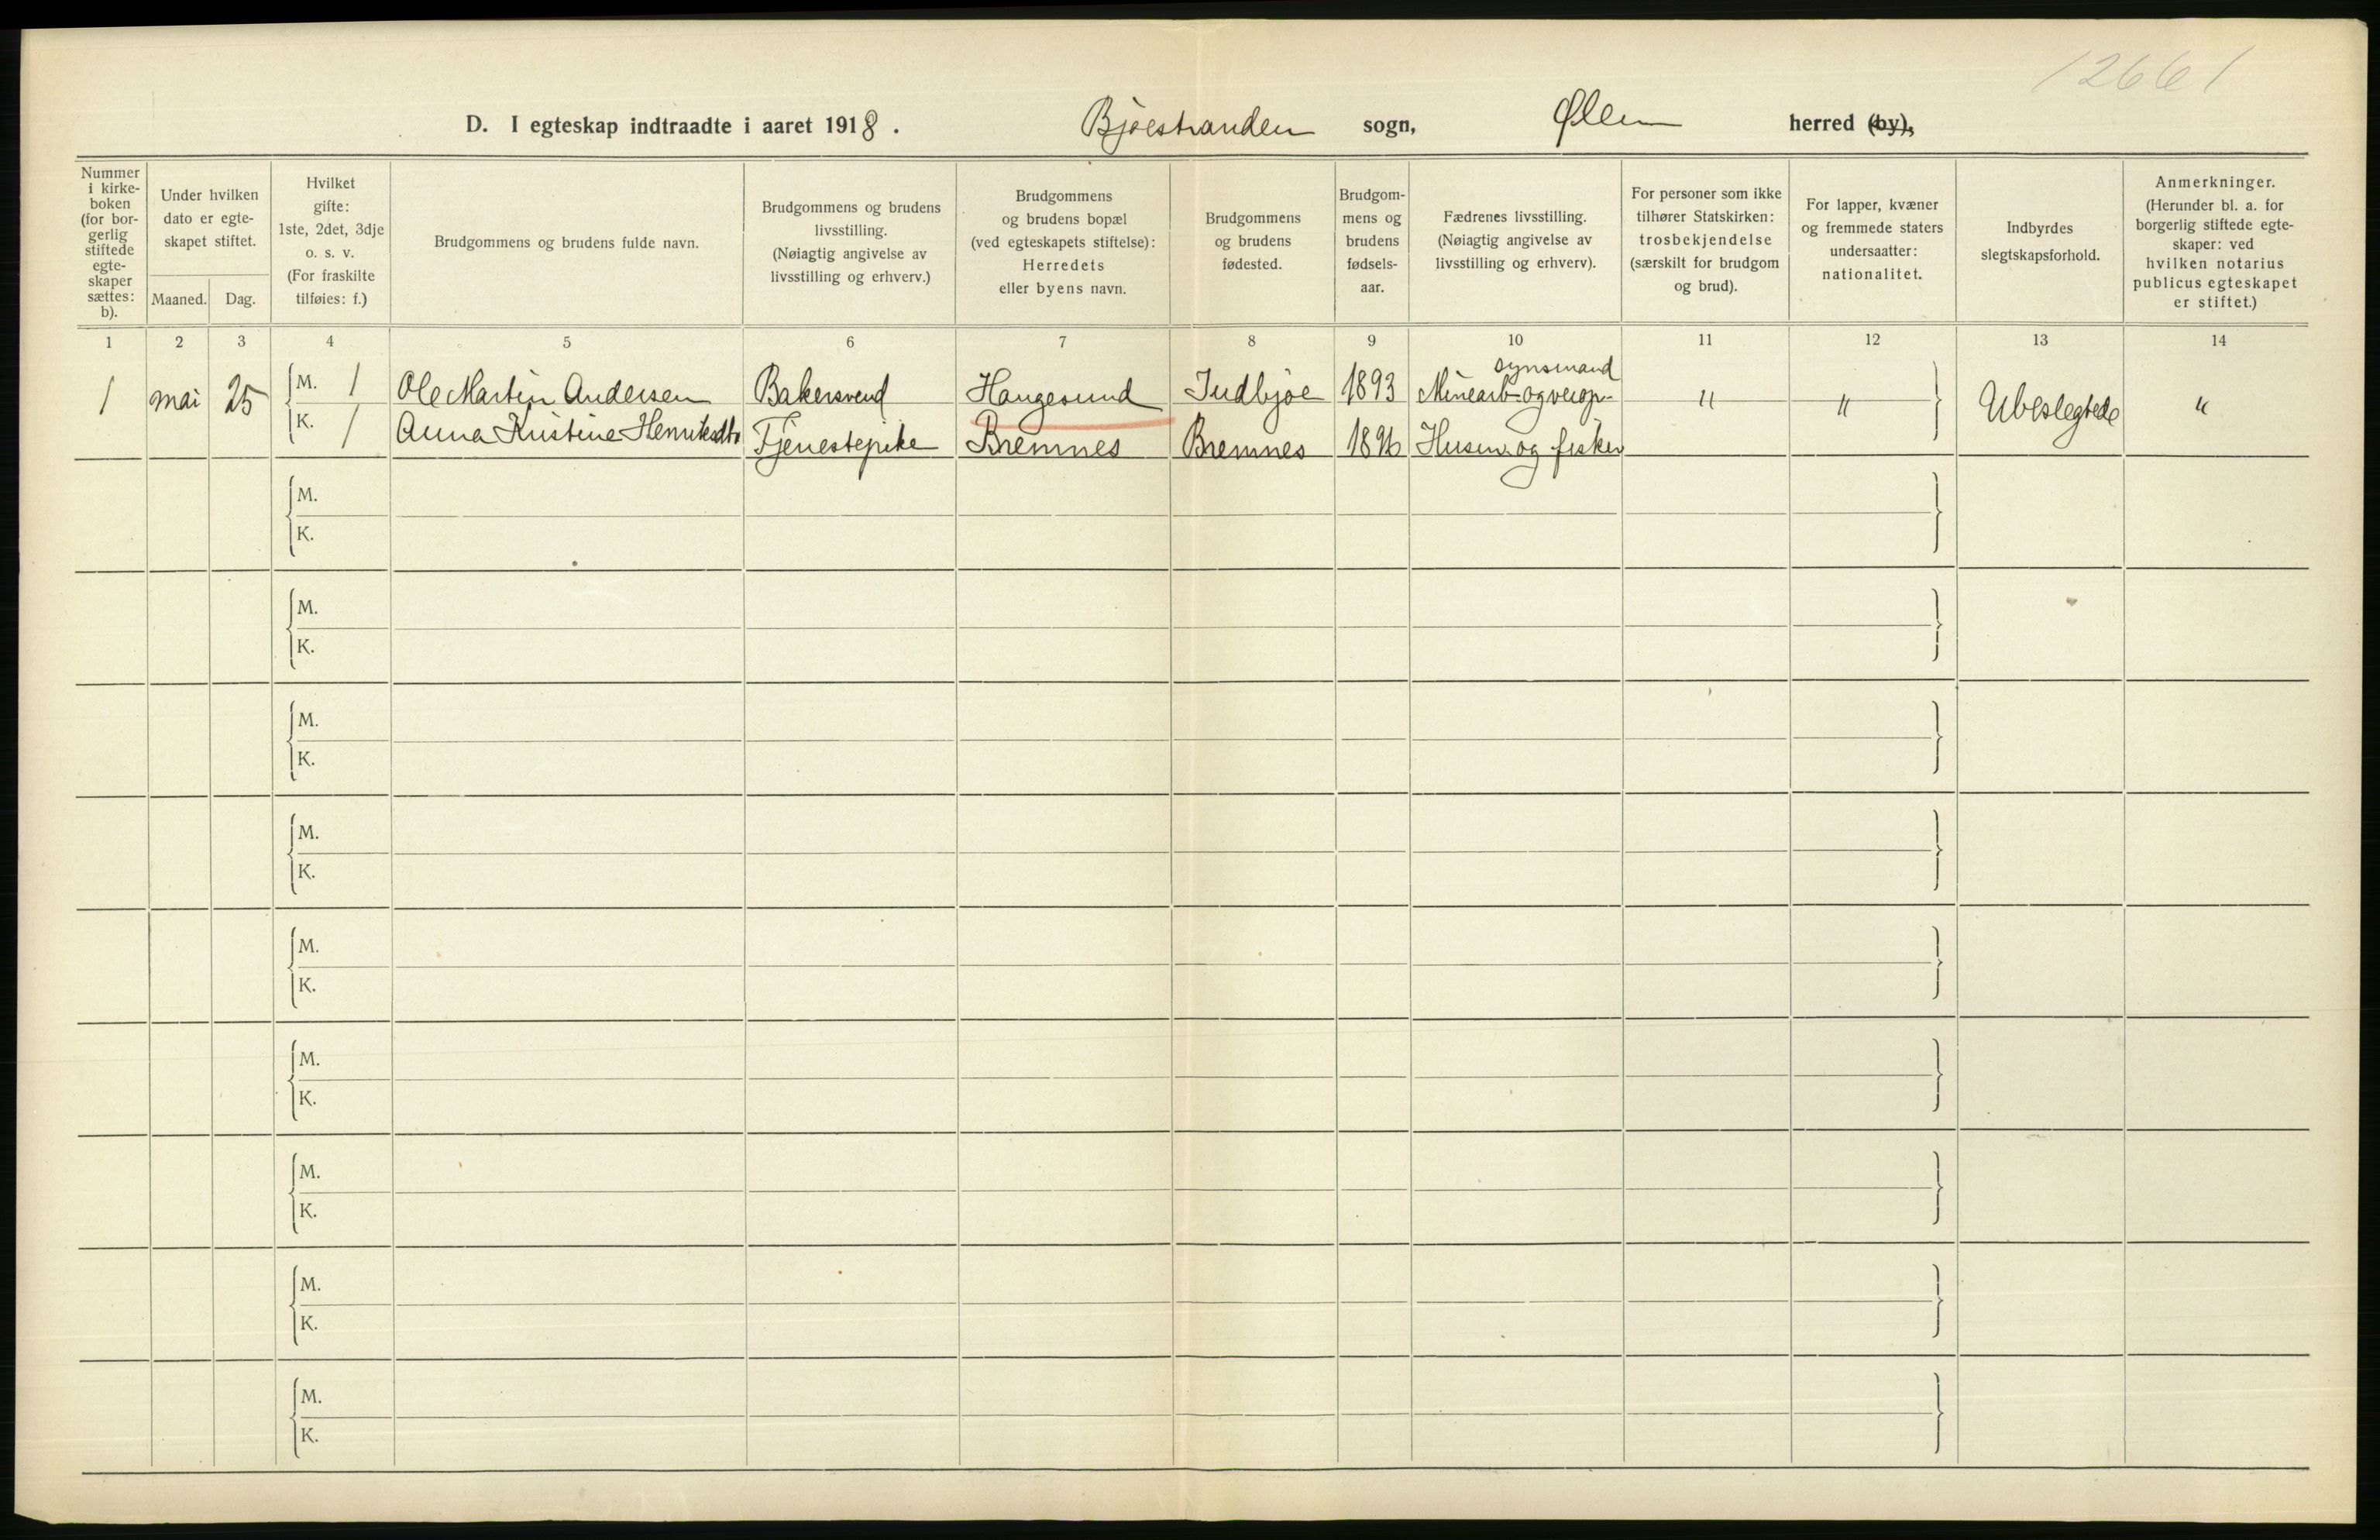 12661
D. I egteskap indtraadte i aaret 1918. Bjoestranden sogn, Ølen herred (by),
Nummer
i kirke-
boken
(for bor-
gerlig
stiftede
egte-
skaper
sættes:
b).
Under hvilken
dato er egte-
skapet stiftet.
Maaned. Dag.
Hvilket
gifte:
1ste, 2det, 3dje
o. s. v.
(For fraskilte
tilføies: f.)
Brudgommens og brudens fulde navn.
Brudgommens og brudens
livsstilling.
(Nøiagtig angivelse av
livsstilling og erhverv.)
Brudgommens
og brudens bopæl
(ved egteskapets stiftelse):
Herredets
eller byens navn.
Brudgommens
og brudens
fødested.
Brudgom-
mens og
brudens
fødsels-
aar.
Fædrenes livsstilling.
(Nøiagtig angivelse av
livsstilling og erhverv).
For personer som ikke
tilhører Statskirken:
trosbekjendelse
(særskilt for brudgom
og brud).
For lapper, kvæner
og fremmede staters
undersaatter:
nationalitet.
Indbyrdes
slegtskapsforhold.
Anmerkninger.
(Herunder bl. a. for
borgerlig stiftede egte-
skaper: ved
hvilken notarius
publicus egteskapet
er stiftet.)
1 2 3 4 5 6 7 8 9 10 11 12 13 14
synsmand
1 mai 25 M. 1 Ole Martin Andersen Bakersvend Haugesund Indbjoe 1893 Minearb. og veiop- " " Ubeslegtede "
K. 1 Anna Kristine Henriksdtr Tjenestepike Bremnes Bremnes 1896 Husm. og fisker
M.
K.
M.
K.
M.
K.
M.
K.
M.
K.
M.
K.
M.
K.
M.
K.
M.
K.